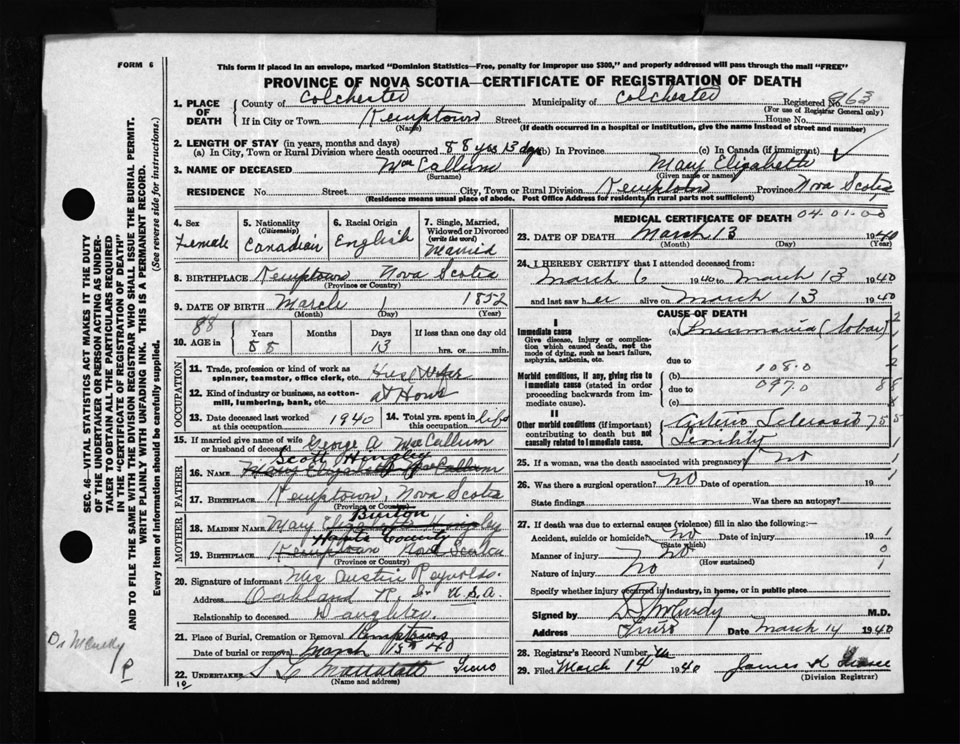 FORM 6
This form if placed in an envelope, marked "Dominion Statistics—Free, penalty for improper use $300," and properly addressed will pass through the mail "FREE"
PROVINCE OF NOVA SCOTIA—CERTIFICATE OF REGISTRATION OF DEATH
1. PLACE OF DEATH County of Colchester Municipality of Colchester Registered No. 963
(For use of Registrar General only)
If in City or Town Kemptown Street House No.
(Name) (If death occurred in a hospital or institution, give the name instead of street and number)
2. LENGTH OF STAY (in years, months and days)
(a) In City, Town or Rural Division where death occurred 88 yrs 13 dys (b) In Province (c) In Canada (if immigrant)
3. NAME OF DECEASED MacCallum Mary Elizabeth
(Surname) (Given name or names)
RESIDENCE No. Street City, Town or Rural Division Kemptown Province Nova Scotia
(Residence means usual place of abode. Post Office Address for residents in rural parts not sufficient)
4. Sex Female
5. Nationality (Citizenship) Canadian
6. Racial Origin English
7. Single, Married, Widowed or Divorced (write the word) Married
8. BIRTHPLACE Kemptown Nova Scotia
(Province or Country)
9. DATE OF BIRTH March 1 1852
(Month) (Day) (Year)
88
10. AGE in Years 88 Months Days 13 If less than one day old hrs. or min.
OCCUPATION
11. Trade, profession or kind of work as spinner, teamster, office clerk, etc. House Wife
12. Kind of industry or business, as cotton-mill, lumbering, bank, etc. at Home
13. Date deceased last worked at this occupation 1940
14. Total yrs. spent in this occupation life
15. If married give name of wife or husband of deceased George A. MacCallum
FATHER
Scott Hingley
16. NAME Mary Elizabeth MacCallum
17. BIRTHPLACE Kemptown, Nova Scotia
(Province or Country)
MOTHER
Burton
18. MAIDEN NAME Mary Elizabeth Hingley
Hants County
19. BIRTHPLACE Kemptown Nova Scotia
20. Signature of informant Mrs Austin Reynolds.
Address Oakland U.S.A.
Relationship to deceased Daughter
21. Place of Burial, Cremation or Removal Kemptown
Date of burial or removal March 15th 40
22. UNDERTAKER Truro
(Name and address)
10
MEDICAL CERTIFICATE OF DEATH 04-01-00
23. DATE OF DEATH March 13 1940
(Month) (Day) (Year)
24. I HEREBY CERTIFY that I attended deceased from:
March 6 1940 to March 13 1940
and last saw her alive on March 13 1940
CAUSE OF DEATH
I
Immediate cause (a) Pneumonia (lobar)
Give disease, injury or complication which caused death, not the mode of dying, such as heart failure, asphyxia, asthenia, etc.
due to
108.0
Morbid conditions, if any, giving rise to immediate cause (stated in order proceeding backwards from immediate cause). (b)
due to 097.0
(c)
II
Other morbid conditions (if important) contributing to death but not causally related to immediate cause. Arterio Sclerosis
Senility
25. If a woman, was the death associated with pregnancy? No
26. Was there a surgical operation? No Date of operation 19
State findings Was there an autopsy?
27. If death was due to external causes (violence) fill in also the following:—
Accident, suicide or homicide? No Date of injury 19
(State which)
Manner of injury No
(How sustained)
Nature of injury No
Specify whether injury occurred in industry, in home, or in public place
Signed by McCurdy M.D.
Address Truro Date March 14 1940
28. Registrar's Record Number
29. Filed March 14 1940 James
(Division Registrar)
SEC. 46—VITAL STATISTICS ACT MAKES IT THE DUTY OF THE UNDERTAKER OR PERSON ACTING AS UNDERTAKER TO OBTAIN ALL THE PARTICULARS REQUIRED IN THE "CERTIFICATE OF REGISTRATION OF DEATH" AND TO FILE THE SAME WITH THE DIVISION REGISTRAR WHO SHALL ISSUE THE BURIAL PERMIT.
WRITE PLAINLY WITH UNFADING INK. THIS IS A PERMANENT RECORD.
Every item of Information should be carefully supplied. (See reverse side for instructions.)
Dr McCurdy
P